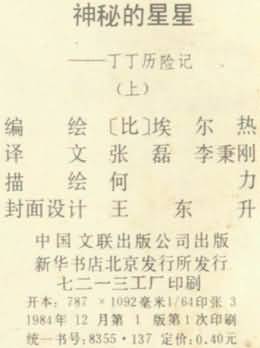 神秘的星星
——丁丁历险记
（上）
编 绘 〔比〕埃 尔 热
译 文 张 磊 李秉刚
描 绘 何 力
封面设计 王 东 升
中国文联出版公司出版
新华书店北京发行所发行
七二一三工厂印刷
开本：787 ×1092毫米1/64印张 3
1984年 12 月第 1 版第1次印刷
统一书号：8355·137 定价：0.40元